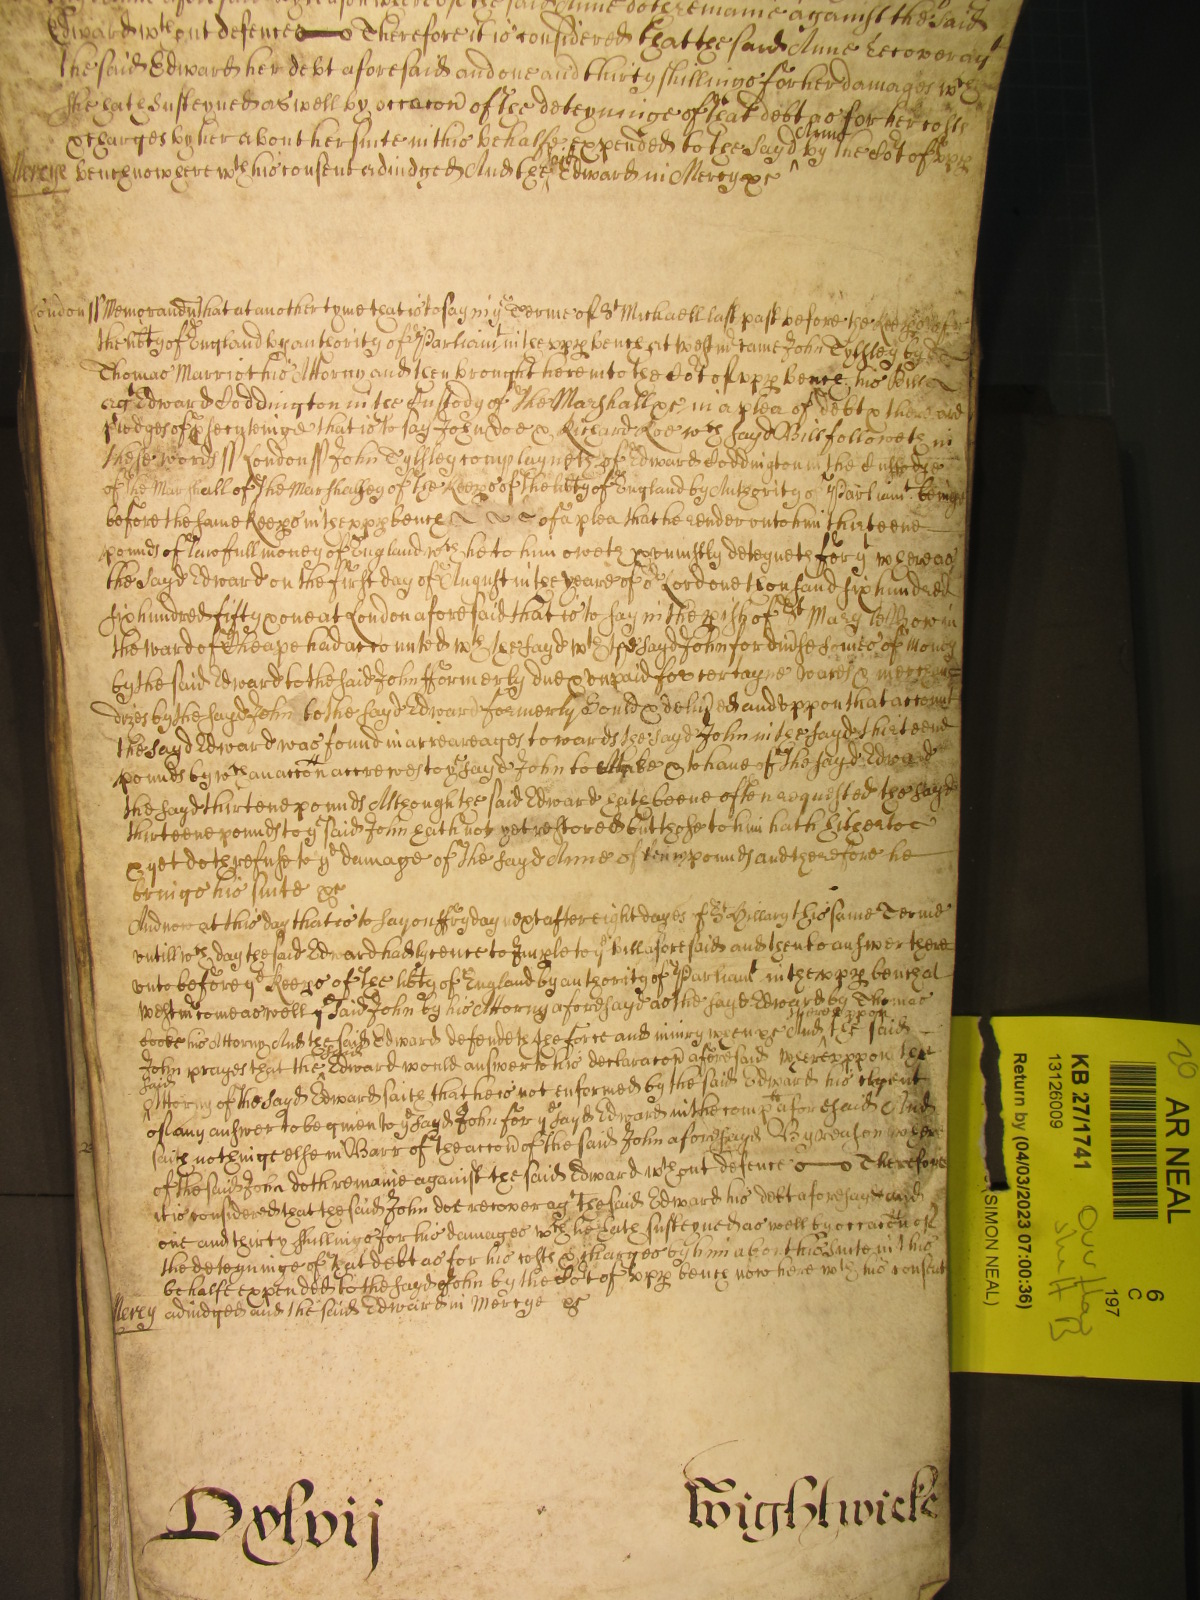 Edward wth out defence Therefore it is considered that the said Anne recover agt
the said Edward her debt aforesaid and one and thirty shillings for her damages wch
she hath susteyned as well by occacon of the deteyninge of that debt as for her costs
& charges by her about her suite in this behalfe expended to the sayd Anne by the Cot of upp
Mercye bench now here wth his consent adiudged And the said Edward in Mercy &c
London ss Memorandu that at another tyme that is to say in ye Terme of St Michaell last past before the Keeps of
the libty of England by authority of Parliamt in the upp bench at Westm came John Tylsley by
Thomas Marriot his Attorny and then brought here into the Cot of upp bench his Bill
agt Edward Coddington in the Custody of the Marshall &c in a plea of debt & there are
pledges of psecuteinge that is to say John doe & Richard Roe wch sayd Bill followeth in
these words ss London ss John Tylsley complayneth of Edward Coddington in the Custodie
of the Marshall of the Marshalsey of the Keeps of the libty of England by Authority of Parliamt being
before the same Keeps in the upp bench of a plea that he render unto him thirteene
pounds of lawfull money of England wch he to him oweth & uniustly deteyneth for yt whereas
the sayd Edward on the first day of August in the yeare of or Lord one thousand six hundred
six hundred fifty & one at London aforesaid that is to say in the pish of St Mary le Bow in
the ward of Cheape had accounted wth the sayd wth the sayd John for divse somes of Money
by the said Edward to the said John fformerly due & unpaid for certayne wares & merchan
dizes by the sayd John to the sayd Edward formerly sould & delived and uppon that account
the sayd Edward was found in arreareages towards the sayd John in the sayd thirteene
pounds by wch an accon accrewes to ye sayd John to & to have of the sayd Edward
the sayd thirtene pounds Although the said Edward hath beene often requested the sayd
thirteene pounds to ye said John hath not yet restored but those to him hath hitherto
& yet doth refuse to ye damage of the sayd Anne of tenn pounds and therefore he
brings his suite &c
And now at this day that is to say on ffryday next after eight dayes of St Hillary this same Terme
untill wch day the said Edward had lycence to Imple to ye bill aforesaid and then to answer there
unto before ye Keeps of the libty of England by authority of Parliamt in the upp bench at
Westm come as well ye said John by his Attorny aforesayd as the sayd Edward by Thomas
Cooke his Attorny And the said Edward defendeth the force and iniury when &c And thereuppon the said
John prayes that the said Edward would answer to his declaracon aforesaid whereuppon the
said Attorny of the sayd Edward saith that he is not enformed by the said Edward his clyent
of any answer to be given to ye sayd John for ye sayd Edward in the compt aforesaid And
saith nothinge else in Barr of the accon of the said John aforesayd By reason whereof
of the said John doth remaine against the said Edward wthout defence Therefore
it is considered that the said John doe recover agt the said Edward his debt aforesayd and
one and thirty shillings for his damages wch he hath susteyned as well by occacon of
the deteyninge of that debt as for his costs & charges by him about his suite in this
behalfe expended to the sayd John by the Cot of upp bench now here wth his consent
Mercy adiudged and the said Edward in Mercye &c
Dxlvij Wightwicke
AR NEAL
6
C
197
KB 27/1741
13126009
Return by (04/03/2023 07:00:36)
(SIMON NEAL)